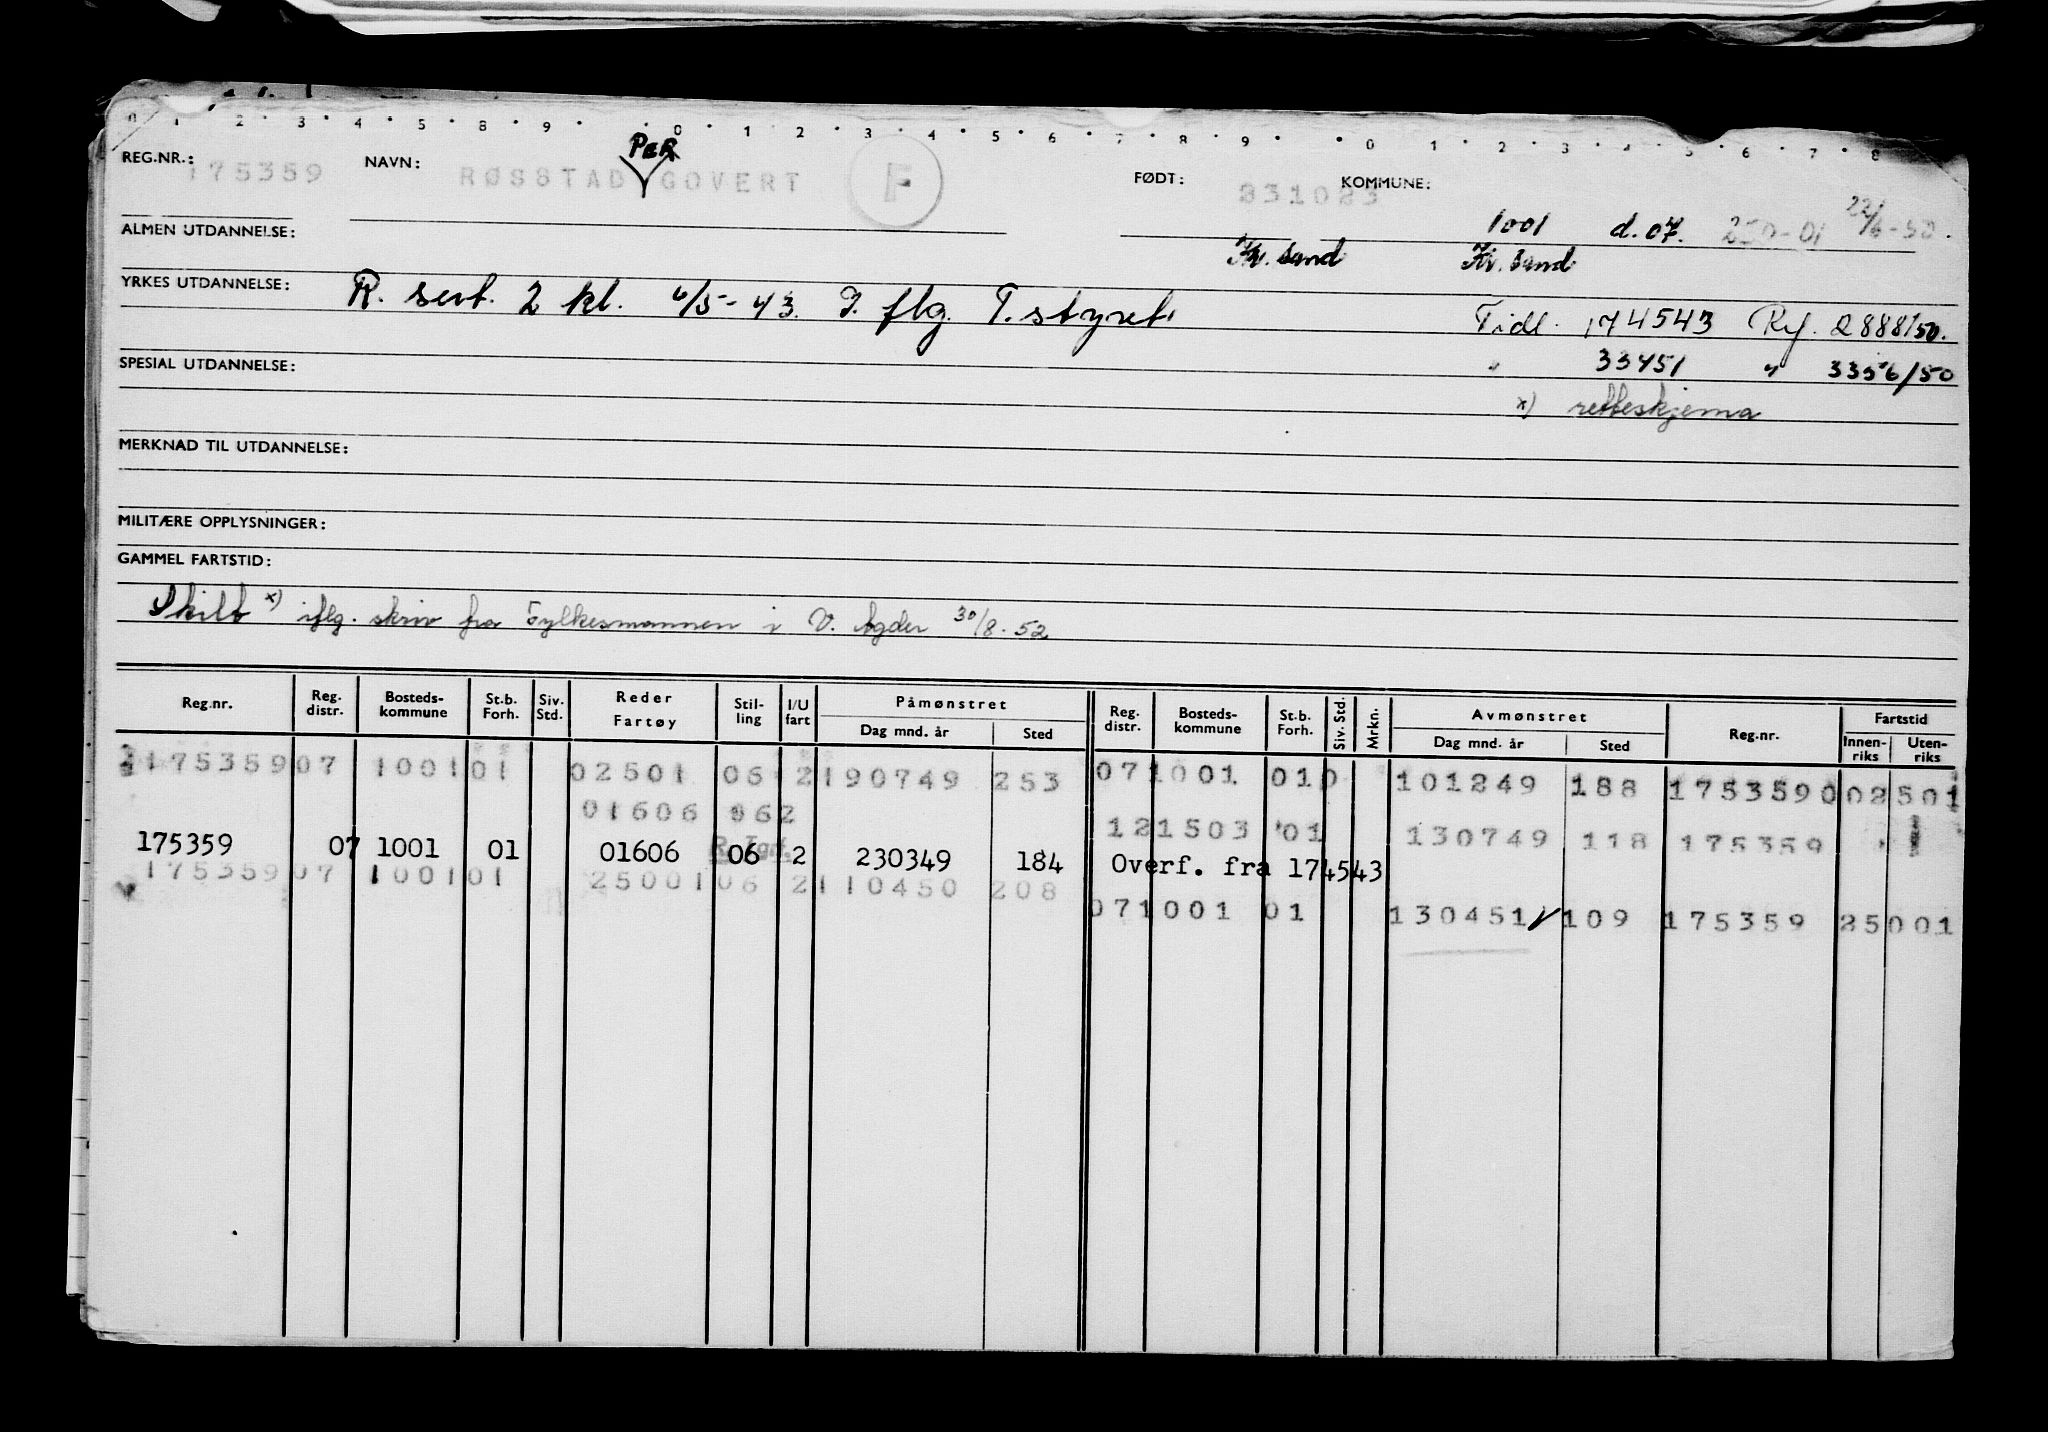 0 1 2 3 4 5 8 9 0 1 2 3 4 5 6 7 8 9 0 1 2 3 4 5 6 7 8
REG.NR.: 175359 NAVN: RØSSTAD PER GOVERT F FØDT: 231023 KOMMUNE:
ALMEN UTDANNELSE: 1001 d. 07. 22/6-50.
Kr. sand Kr. sand
YRKES UTDANNELSE: R. sert. 2 kl. 6/5-43. I. flg. T. styret.
Tidl. 174543 Ref. 2888/50.
SPESIAL UTDANNELSE: " 33451 " 3356/50
x) retteskjema
MERKNAD TIL UTDANNELSE:
MILITÆRE OPPLYSNINGER:
GAMMEL FARTSTID:
Skilt x) iflg. skriv fra Fylkesmannen i V. Agder 30/8-52
Reg.nr. Reg. distr. Bosteds-kommune St.b. Forh. Siv. Std. Reder Fartøy Stil-ling I/U fart Påmønstret Dag mnd. år Sted Reg. distr. Bosteds-kommune St.b. Forh. Siv. Std. Mrkn. Avmønstret Dag mnd. år Sted Reg.nr. Fartstid Innen-riks Uten-riks
175359 07 1001 01 02501 06 2 190749 253 07 1001 01 0 101249 188 175359 0 02501
01606 062 12 1503 01 130749 118 175359
175359 07 1001 01 01606 06 2 230349 184 Overf. fra 174543
175359 07 1001 01 25001 06 2 110450 208 07 1001 01 130451 109 175359 25001